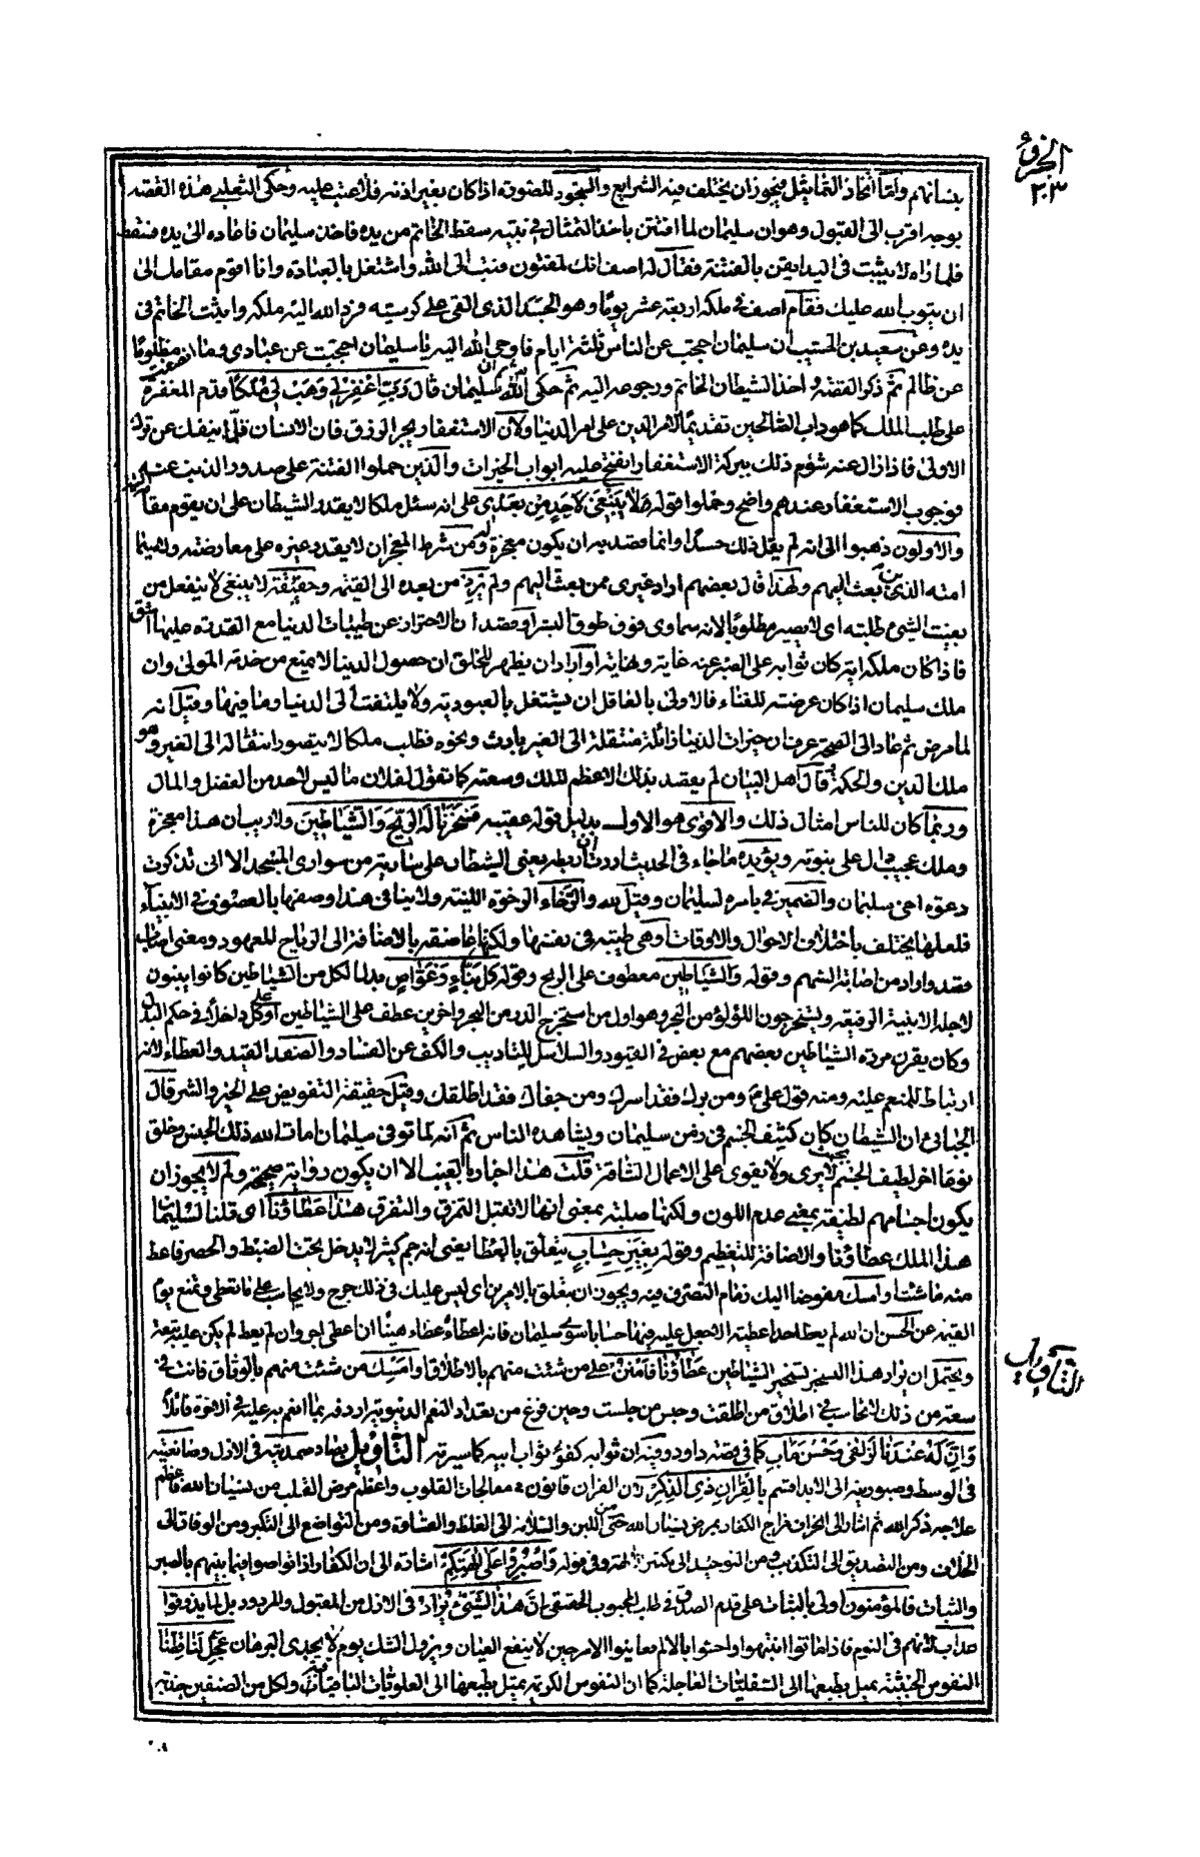 الجزؤ
٢٠٣
بنسائهم واما اتخاذ التماثيل فيجوز ان يختلف فيه الشرايع والسجود للصورة اذا كان بغير اذنه فلا عتب عليه وحكى الثعلبي هذه القصة
بوجه اقرب الى القبول وهو ان سليمان لما افتتن باخذ التمثال في بيته سقط الخاتم من يده فاخذه سليمان فاعاده الى يده فسقط
فلما راه لا يثبت في اليد ايقن بالفتنة فقال له اصف انك لمفتون فتب الى الله واشتغل بالعبادة وانا اقوم مقامك الى
ان يتوب الله عليك فقام اصف في ملكه اربعة عشر يوما وهو الجسد الذي القى على كرسيه فرد الله اليه ملكه واثبت الخاتم في
يده وعن سعيد بن المسيب ان سليمان احتجب عن الناس ثلثة ايام فاوحى الله اليه يا سليمان احتجبت عن عبادي وما انصفت مظلوما
عن ظالم ثم ذكر القصة واخذ الشيطان الخاتم ورجوعه اليه ثم حكى الله ان سليمان قال رب اغفر لي وهب لي ملكا قدم المغفرة
على طلب الملك كما هو داب الصالحين تقديما لامر الدين على امر الدنيا ولان الاستغفار يجر الرزق فان الانسان قلما ينفك عن ترك
الاولى فاذا زال عنه شؤم ذلك ببركة الاستغفار انفتح عليه ابواب الخيرات والذين حملوا الفتنة على صدور الذنب عنه
فوجوب الاستغفار عندهم واضح وحملوا قوله لا ينبغي لاحد من بعدي على انه سئل ملكا لا يقدر الشيطان على ان يقوم مقامه
والاولون ذهبوا الى انه لم يقل ذلك حسدا وانما قصد به ان يكون معجزة له ومن شرط المعجز ان لا يقدر غيره على معارضته ولا سيما
امته الذين بعث اليهم ولهذا قال بعضهم اراد غيري ممن بعثت اليهم ولم يرد من بعده الى القيمة وحقيقة لا ينبغي لا ينفعل من
بغيت الشيء طلبته اي لا يصير مطلوبا لانه سماوي فوق طوق البشر او قصد ان الاحتراز عن طيبات الدنيا مع القدرة عليها اشق
فاذا كان ملكه اية كان ثوابه على الصبر عنه غاية ونهاية او اراد ان يظهر للخلق ان حصول الدنيا لا يمنع من خدمة المولى وان
ملك سليمان اذا كان عرضته للفناء فالاولى بالعاقل ان يشتغل بالعبودية ولا يلتفت الى الدنيا وما فيها وقيل انه
لما مرض ثم عاد الى الصحة عرف ان خيرات الدنيا زائلة منتقلة الى الغير بارث ونحوه فطلب ملكا لا يتصور انتقاله الى الغير وهو
ملك الدين والحكمة وقال اهل البيان لم يقصد بذلك الا عظم الملك وسعته كما تقول لفلان ما ليس لاحد من الفضل والمال
وربما كان للناس امثال ذلك والاقوى هو الاول بدليل قوله عقيبه فسخرنا له الريح والشياطين ولا ريب ان هذا معجزة
وملك عجيب دال على نبوته ويؤيده ما جاء في الحديث اردت ان اربطه يعني الشيطان على سارية من سواري المسجد الا اني تذكرت
دعوة اخي سليمان والضمير في بامره لسليمان وقيل لله والرخاء الرخوة اللينة ولا ينافي هذا وصفها بالعصوف في الانبياء
فلعلها يختلف باختلاف الاحوال والاوقات او هي طيبة في نفسها ولكنها عاصفة بالاضافة الى الرياح المعهود ومعنى اصاب
قصد واراد من اصابة السهم وقوله والشياطين معطوف على الريح وقوله كل بناء وغواص بدل الكل من الشياطين كانوا يبنون
لاجله الابنية الرفيعة ويستخرجون اللؤلؤ من البحر وهو اول من استخرج الدر من البحر واخرين عطف على الشياطين او على كل داخل في حكم البدل
وكان يقرن مردة الشياطين بعضهم مع بعض في القيود والسلاسل للتاديب والكف عن الفساد والصفد القيد والعطاء لانه
ارتباط للمنعم عليه ومنه قول علي ع ومن برك فقد اسرك ومن جفاك فقد اطلقك وقيل حقيقة التفويض على الخير والشر قال
الجبائي ان الشيطان كان كثيف الجسم في زمن سليمان ويشاهده الناس ثم انه لما توفي سليمان امات الله ذلك الجنس وخلق
نوعا اخر لطيف الجسم بحيث لا يرى ولا يقوى على الاعمال الشاقة قلت هذا اخبار بالغيب الا ان يكون رواية صحيحة ولم لا يجوز ان
يكون اجسامهم لطيفة بمعنى عدم اللون ولكنها صلبة بمعنى انها لا تقبل التمزق والتفرق هذا عطاؤنا اي قلنا لسليمان
هذا الملك عطاؤنا والاضافة للتعظيم وقوله بغير حساب يتعلق بالعطا يعني انه جم كثير لا يدخل تحت الضبط والحصر فاعط
منه ما شئت او امسك مفوضا اليك زمام التصرف فيه ويجوز ان يتعلق بالامرين اي ليس عليك في ذلك حرج ولا يحاسب على ما تعطي وتمنع يوم
القيمة عن الحسن ان الله لم يعط احدا عطية الا جعل عليه فيها حسابا سوى سليمان فانه اعطاه عطاء هنيئا ان اعطى اجر وان لم يعط لم يكن عليه تبعة
ويحتمل ان يراد هذا التسخير تسخير الشياطين عطاؤنا فامنن على من شئت منهم بالاطلاق او امسك من شئت منهم بالوفاق فانت في
سعة من ذلك لا تحاسب في اطلاق من اطلقت وحبس من حبست وحين فرغ من تعداد النعم الدنيوية اردفه بما انعم به عليه في الاخرة قائلا
وان له عندنا لزلفى وحسن ماب كما في قصة داود وفيه ان ثوابه كفؤ ثواب ابيه كما سيرته التاويل بصاد صمديته في الازل وصانعيته
في الوسط وصبوريته الى الابد اقسم بالقران ذي الذكر لان القران قانون معالجات القلوب واعظم مرض القلب من نسيان الله فاعظم
علاجه ذكر الله ثم اشار الى انحراف مزاج الكفار بمرض نسيان الله حتى من اللين والسلامة الى الغلظ والقساوة ومن التواضع الى التكبر ومن الوفاق الى
الخلاف ومن التصديق الى التكذيب ومن التوحيد الى تكثير الالهة وفي قوله واصبروا على الهتكم اشارة الى ان الكفار اذا تواصوا فيما بينهم بالصبر
والثبات فالمؤمنون اولى بالثبات على قدم الصدق في طلب المحبوب الحقيقي ان هذا لشيء يراد في الازل من المقبول والمردود بل لما يذوقوا
عذاب لانهم في النوم فاذا ماتوا انتبهوا واحسوا بالالم معاينوا الامر حين لا ينفع العيان ويزول الشك يوم لا يجدى البرهان عجل لنا قطنا
النفوس الخبيثة يميل بطبعها الى السفليات العاجلة كما ان النفوس الكريمة يميل بطبعها الى العلويات الباقية ولكل من الصنفين جنة
التاويل